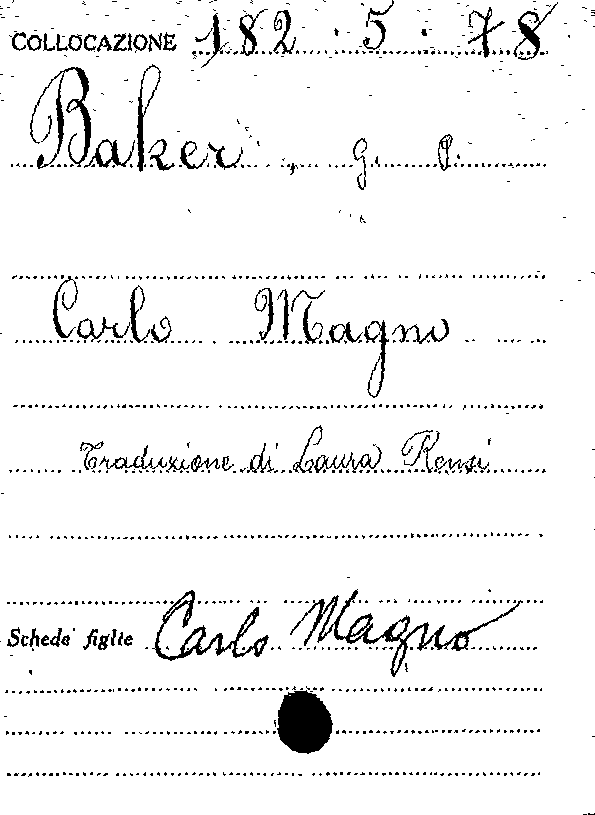 COLLOCAZIONE 182.5.78
Baker, G. P.
Carlo Magno
Traduzione di Laura Rensi
Schede figlie Carlo Magno